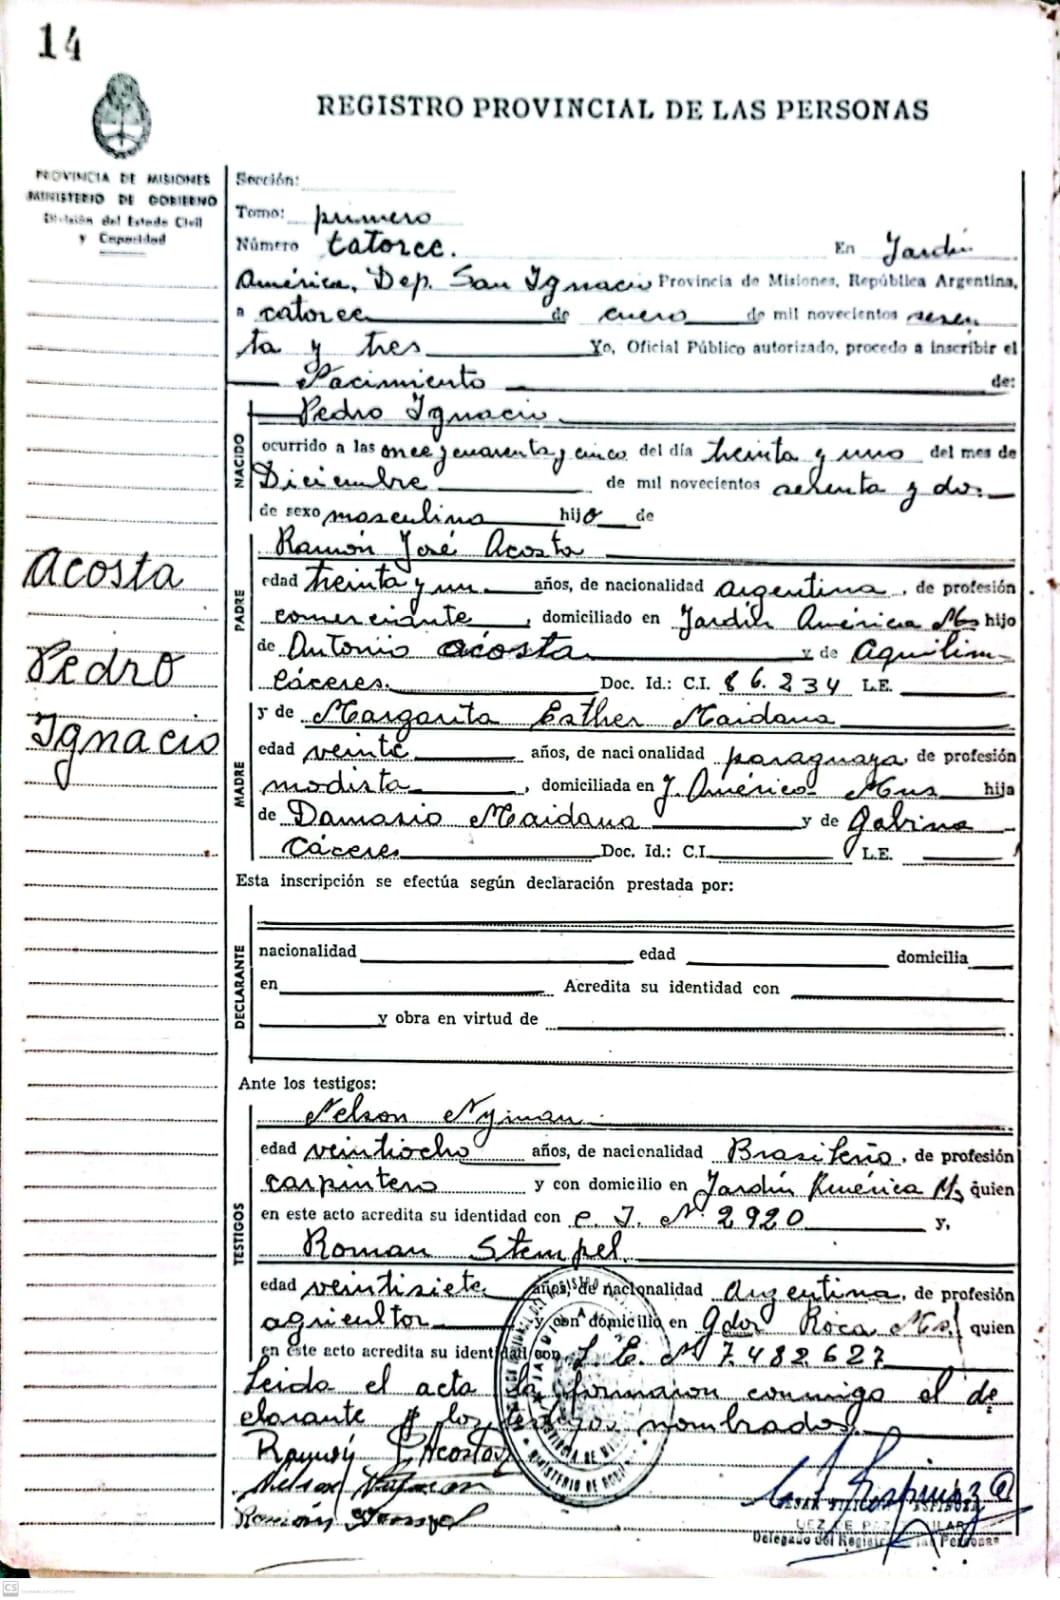 14
REGISTRO PROVINCIAL DE LAS PERSONAS
PROVINCIA DE MISIONES
MINISTERIO DE GOBIERNO
División del Estado Civil
y Capacidad
Sección:
Tomo: primero
Número catorce. En Jardín
América, Dep. San Ignacio Provincia de Misiones, República Argentina,
a catorce de enero de mil novecientos sesen
ta y tres Yo, Oficial Público autorizado, procedo a inscribir el
Nacimiento de:
NACIDO
Pedro Ignacio
ocurrido a las once y cuarenta y cinco del día treinta y uno del mes de
Diciembre de mil novecientos sesenta y dos.
de sexo masculino hijo de
Acosta
Pedro
Ignacio
PADRE
Ramón José Acosta
edad treinta y un años, de nacionalidad argentina, de profesión
comerciante, domiciliado en Jardín América Ms hijo
de Antonio acosta y de Aquilina
Cáceres. Doc. Id.: C.I. 86.234 L.E.
MADRE
y de Margarita Esther Maidana
edad veinte años, de nacionalidad paraguaya, de profesión
modista, domiciliada en J. América Mns hija
de Damasio Maidana y de Gabina
Cáceres Doc. Id.: C.I. L.E.
Esta inscripción se efectúa según declaración prestada por:
DECLARANTE
nacionalidad edad domicilia
en Acredita su identidad con
y obra en virtud de
Ante los testigos:
TESTIGOS
Nelson Nyman
edad veintiocho años, de nacionalidad Brasileño, de profesión
carpintero y con domicilio en Jardín América Ms, quien
en este acto acredita su identidad con C. I. Nº 2920 y,
Roman Stempel
edad veintisiete años, de nacionalidad Argentina, de profesión
agricultor y con domicilio en Gdor Roca Ms. quien
en este acto acredita su identidad con L. E. Nº 7.482627
Leida el acta la formaron conmigo el de
clarante y los testigos nombrados.
Ramón J Acosta
Nelson Nyman
Román Stempel
MINISTERIO DE
ESPINOZA
Delegado del Registro de las Personas
CS